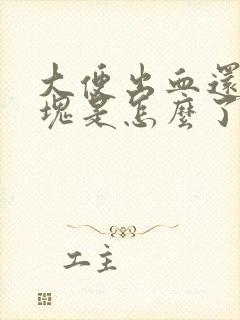 大便出血還
塊是怎麼了
工主